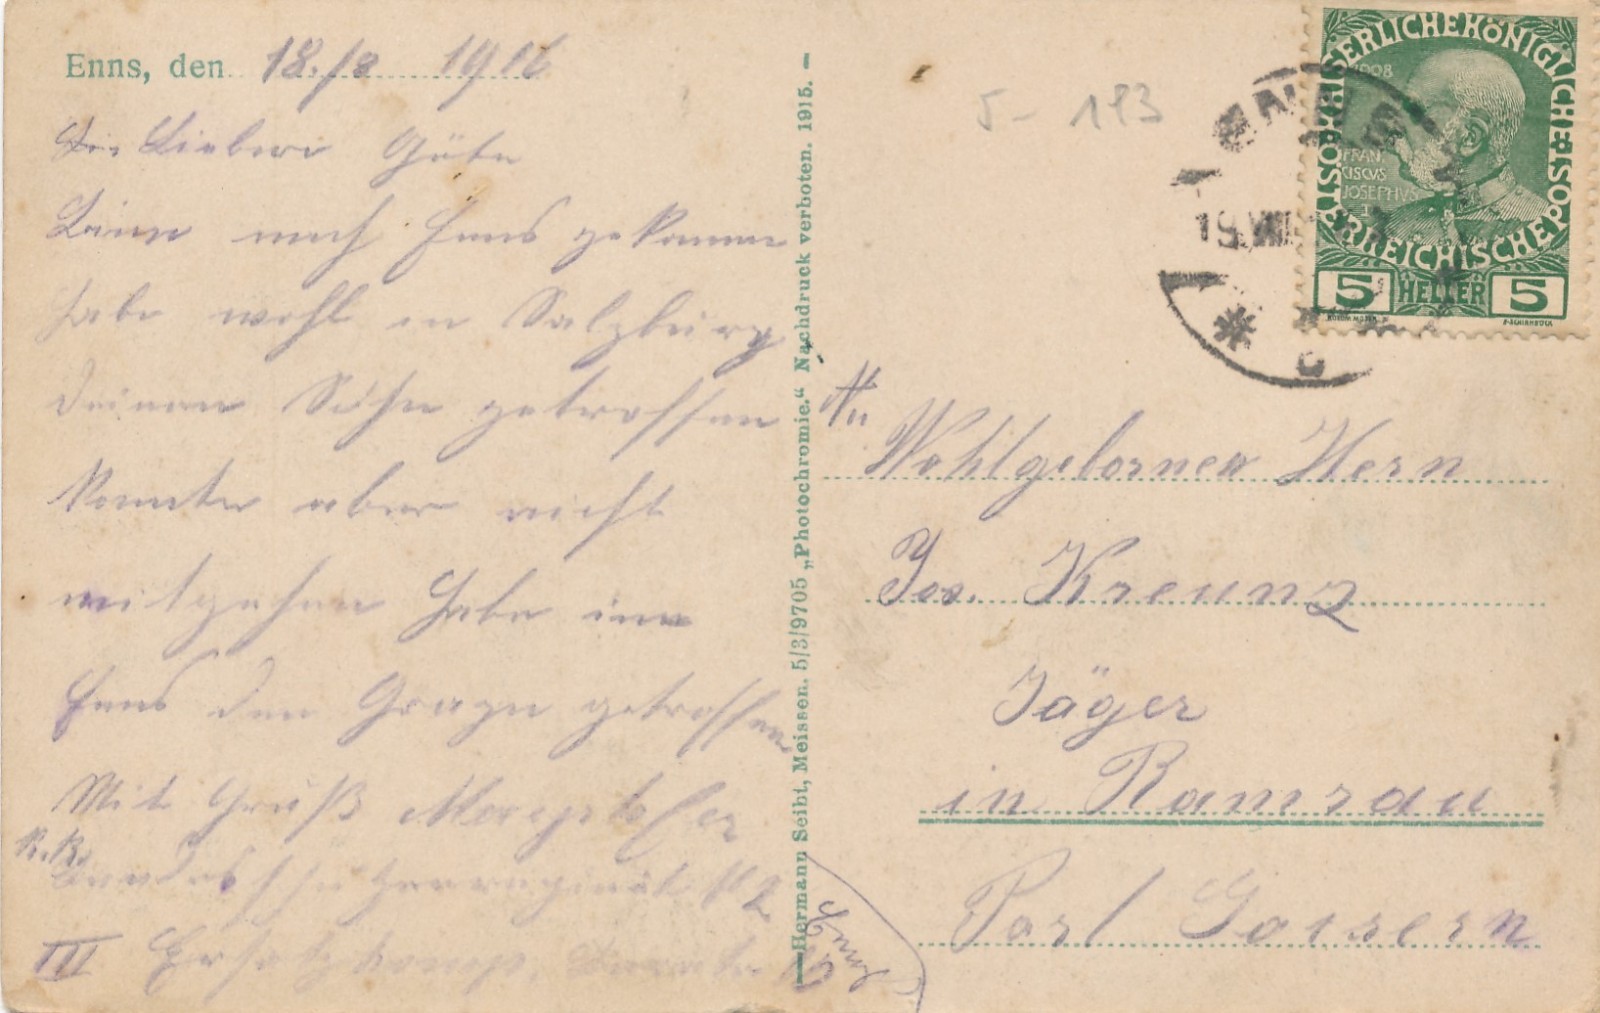 Enns, den 18./8 1916
Lieber Göte
Bin nach Enns gekommen
habe wohl in Salzburg
deinen Sohn getroffen
konnte aber nicht
mitgehen habe in
Enns den getroffen
Mit Gruß
k.k.
Landesschützenregiment № 2
III Ersatzkomp.
Enns
Hermann Seibt, Meissen. 5/3/9705 „Photochromie." Nachdruck verboten. 1915. –
5 - 193
KAISERLICHE KÖNIGLICHE ÖSTERREICHISCHE POST
1908
FRAN
CISCVS
JOSEPHVS I
5 HELLER 5
19.VIII
An
Wohlgebornen Hern
Jos. Kreunz
Jäger
in Ramsau
Post Goisern